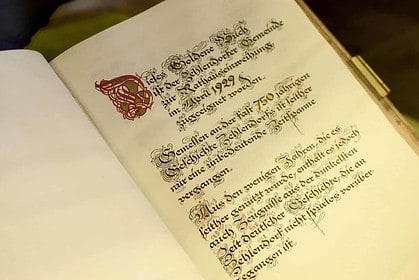 Dieses Goldene Buch
ist der Zehlendorfer Gemeinde
zur Rathauseinweihung
im Mai 1929
zugeeignet worden.
Gemessen an der fast 750 jährigen
Geschichte Zehlendorfs ist seither
nur eine unbedeutende Zeitspanne
vergangen.
Aus den wenigen Jahren, die es
seither genützt wurde, enthält es jedoch
auch Zeugnisse aus der dunkelsten
Zeit deutscher Geschichte, die an
Zehlendorf nicht spurlos vorüber-
gegangen ist.